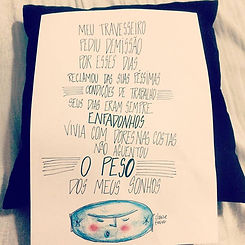 MEU TRAVESSEIRO
PEDIU DEMISSÃO
POR ESSES DIAS
RECLAMOU DAS SUAS PÉSSIMAS
CONDIÇÕES DE TRABALHO
SEUS DIAS ERAM SEMPRE
ENFADONHOS
VIVIA COM DORES NAS COSTAS
NÃO AGUENTOU
O PESO
DOS MEUS SONHOS